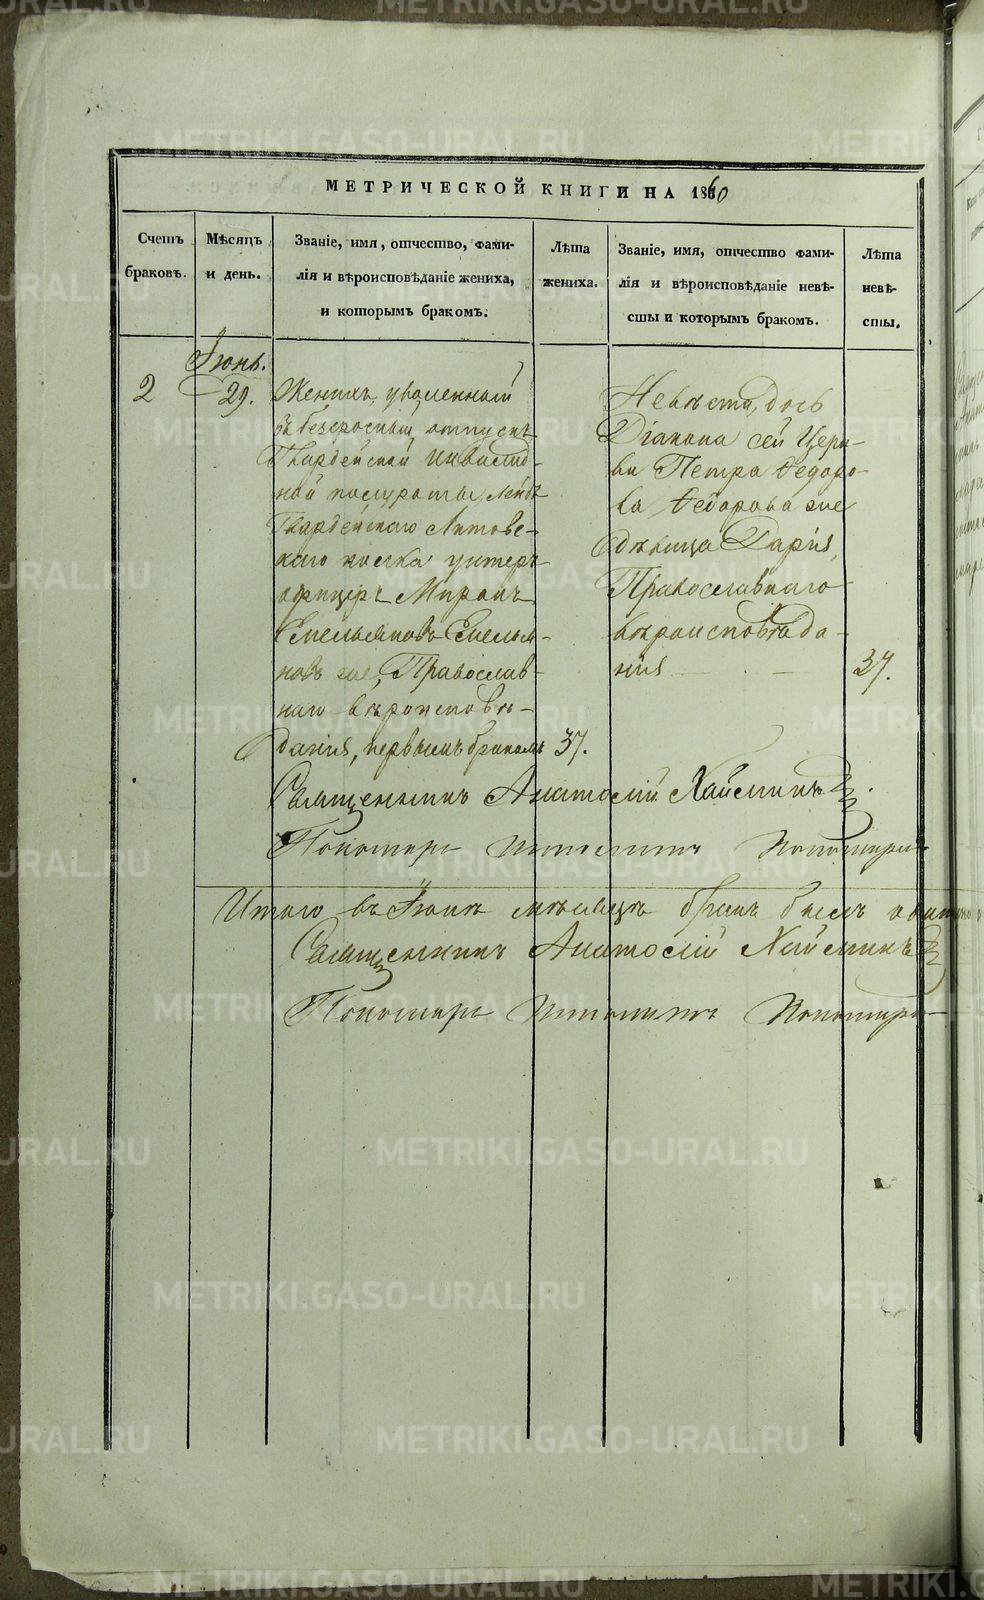 МЕТРИЧЕСКОЙ КНИГИ НА 1860
Счетъ браковъ.
Мѣсяцъ и день.
Званіе, имя, отчество, фами-
лія и вѣроисповѣданіе жениха,
и которымъ бракомъ.
Лѣта жениха.
Званіе, имя, отчество фами-
лія и вѣроисповѣданіе невѣ-
сты и которымъ бракомъ.
Лѣта невѣ-
сты.
Іюнь.
2
29.
Женихъ, уволенный
въ безсрочный отпускъ
Гвардейской инвалид-
ной полуроты, Лейбъ
Гвардейскаго Литовс-
каго полка унтеръ
офицеръ Миронъ
Емельяновъ Емелья-
новъ же, Православ-
наго вѣроисповѣ-
данія, первымъ бракомъ
37.
Невѣста, дочь
Діакона сей Церк-
ви Петра Ѳедоро-
ва Ѳедорова же
дѣвица Дарія,
Православнаго
вѣроисповѣда-
нія
37.
Священникъ Анатолій
Пономарь Ипполитъ Пономаревъ
Итого въ Іюнѣ мѣсяцѣ бракъ былъ одинъ
Священникъ Анатолій
Пономарь Ипполитъ Пономаревъ
METRIKI.GASO-URAL.RU